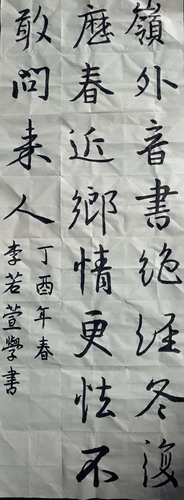 嶺外音書絶經冬復
歷春近鄉情更怯不
敢問来人
丁酉年春
李若萱學書